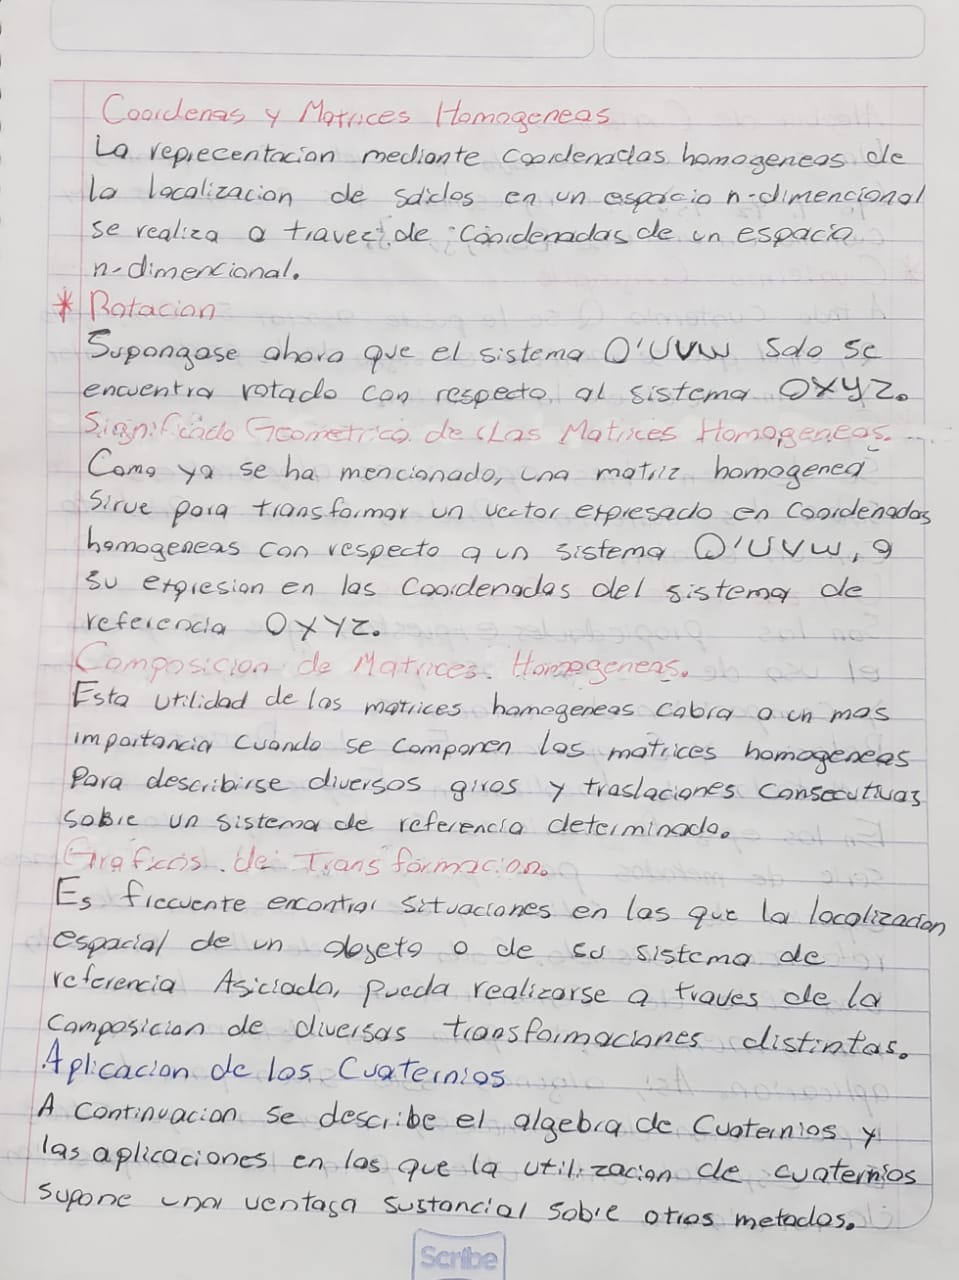 Coordenas y Matrices Homogeneas
La reprecentacion mediante coordenadas homogeneas de
la localizacion de solidos en un espacio n-dimencional
se realiza a travez de coordenadas de un espacio
n-dimencional.
* Rotacion
Supongase ahora que el sistema O'UVW solo se
encuentra rotado con respecto al sistema OXYZ.
Significado Geometrico de Las Matrices Homogeneas.
Como ya se ha mencionado, una matriz homogenea
sirve para transformar un vector expresado en coordenadas
homogeneas con respecto a un sistema O'UVW, a
su expresion en las coordenadas del sistema de
referencia OXYZ.
Composicion de Matrices Homogeneas.
Esta utilidad de las matrices homogeneas cabra a un mas
importancia cuando se componen las matrices homogeneas
Para describirse diversos giros y traslaciones consecutivas
sobre un sistema de referencia determinado.
Graficos de Transformacion.
Es frecuente encontrar situaciones en las que la localizacion
espacial de un objeto o de su sistema de
referencia Asiciado, pueda realizarse a traves de la
composicion de diversas transformaciones distintas.
Aplicacion de los Cuaternios
A continuacion se describe el algebra de Cuaternios y
las aplicaciones en las que la utilizacion de cuaternios
supone una ventaja sustancial sobre otros metodos.
Scribe